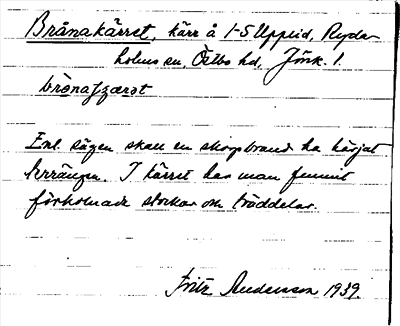 Brånakärret, kärr å 1-5 Uppeid, Ryda-
holms sn, Östbo hd, Jönk. l.
brònaʃzærət
Enl. sägen skall en skogsbrand ha härjat
terrängen. I kärret har man funnit
förkolnade stockar och träddelar.
Fritz Andersson 1939.